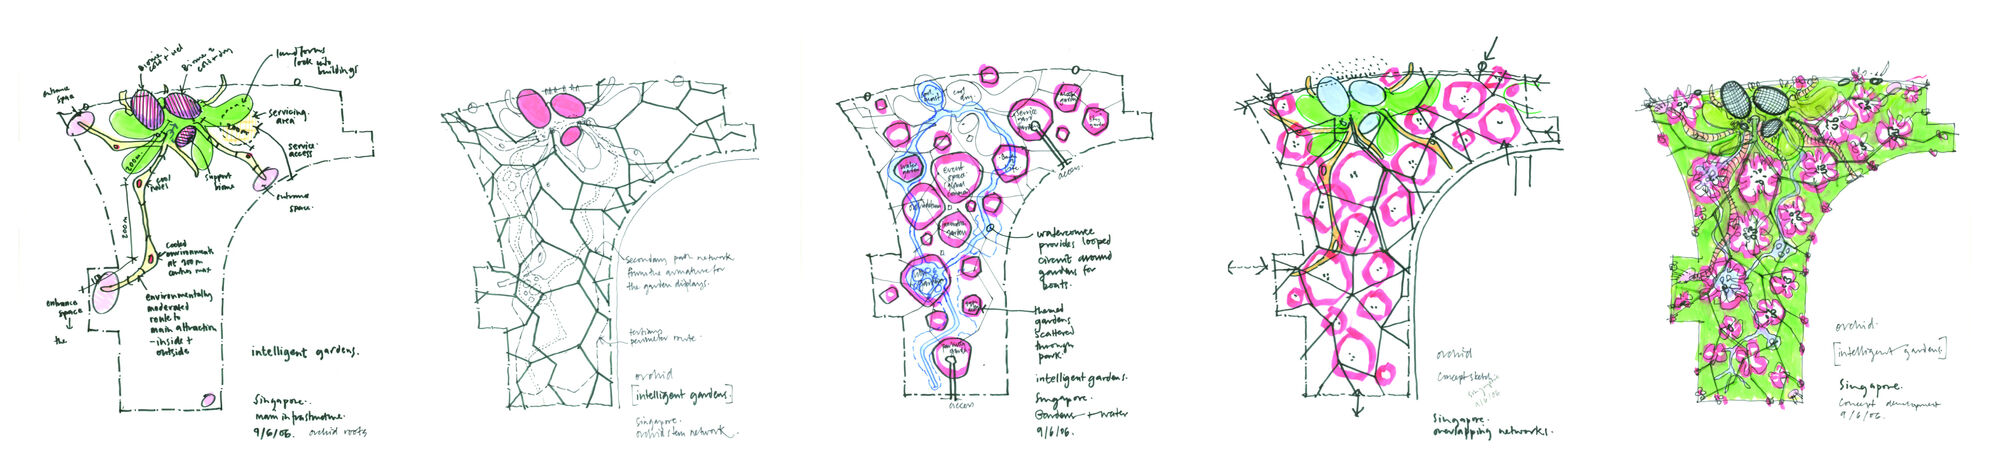 Biome 1
cold + wet
Biome 2
cold + dry
landforms
look into
buildings
entrance
space
servicing
area
service
access
200m
200m
cool
nodes
support
biome
entrance
space.
200m
cooled
environments
at 200m
centres max
entrance
space
the
environmentally
moderated
route to
main attraction
- inside +
outside
intelligent gardens.
Singapore.
main infrastructure.
9/6/06. orchid roots
secondary path network
forms the armature for
the garden displays.
tertiary
perimeter route.
orchid
[intelligent gardens.]
Singapore.
orchid stem network.
cool
moist
cool
dry
access
event
space
watercourse
provides looped
circuit around
gardens for
boats.
themed
gardens
scattered
through
park.
intelligent gardens.
Singapore.
Gardens + water
9/6/06.
access
orchid
concept sketch
Singapore
Singapore.
overlapping networks.
orchid.
[intelligent gardens]
Singapore.
Concept development
9/6/06